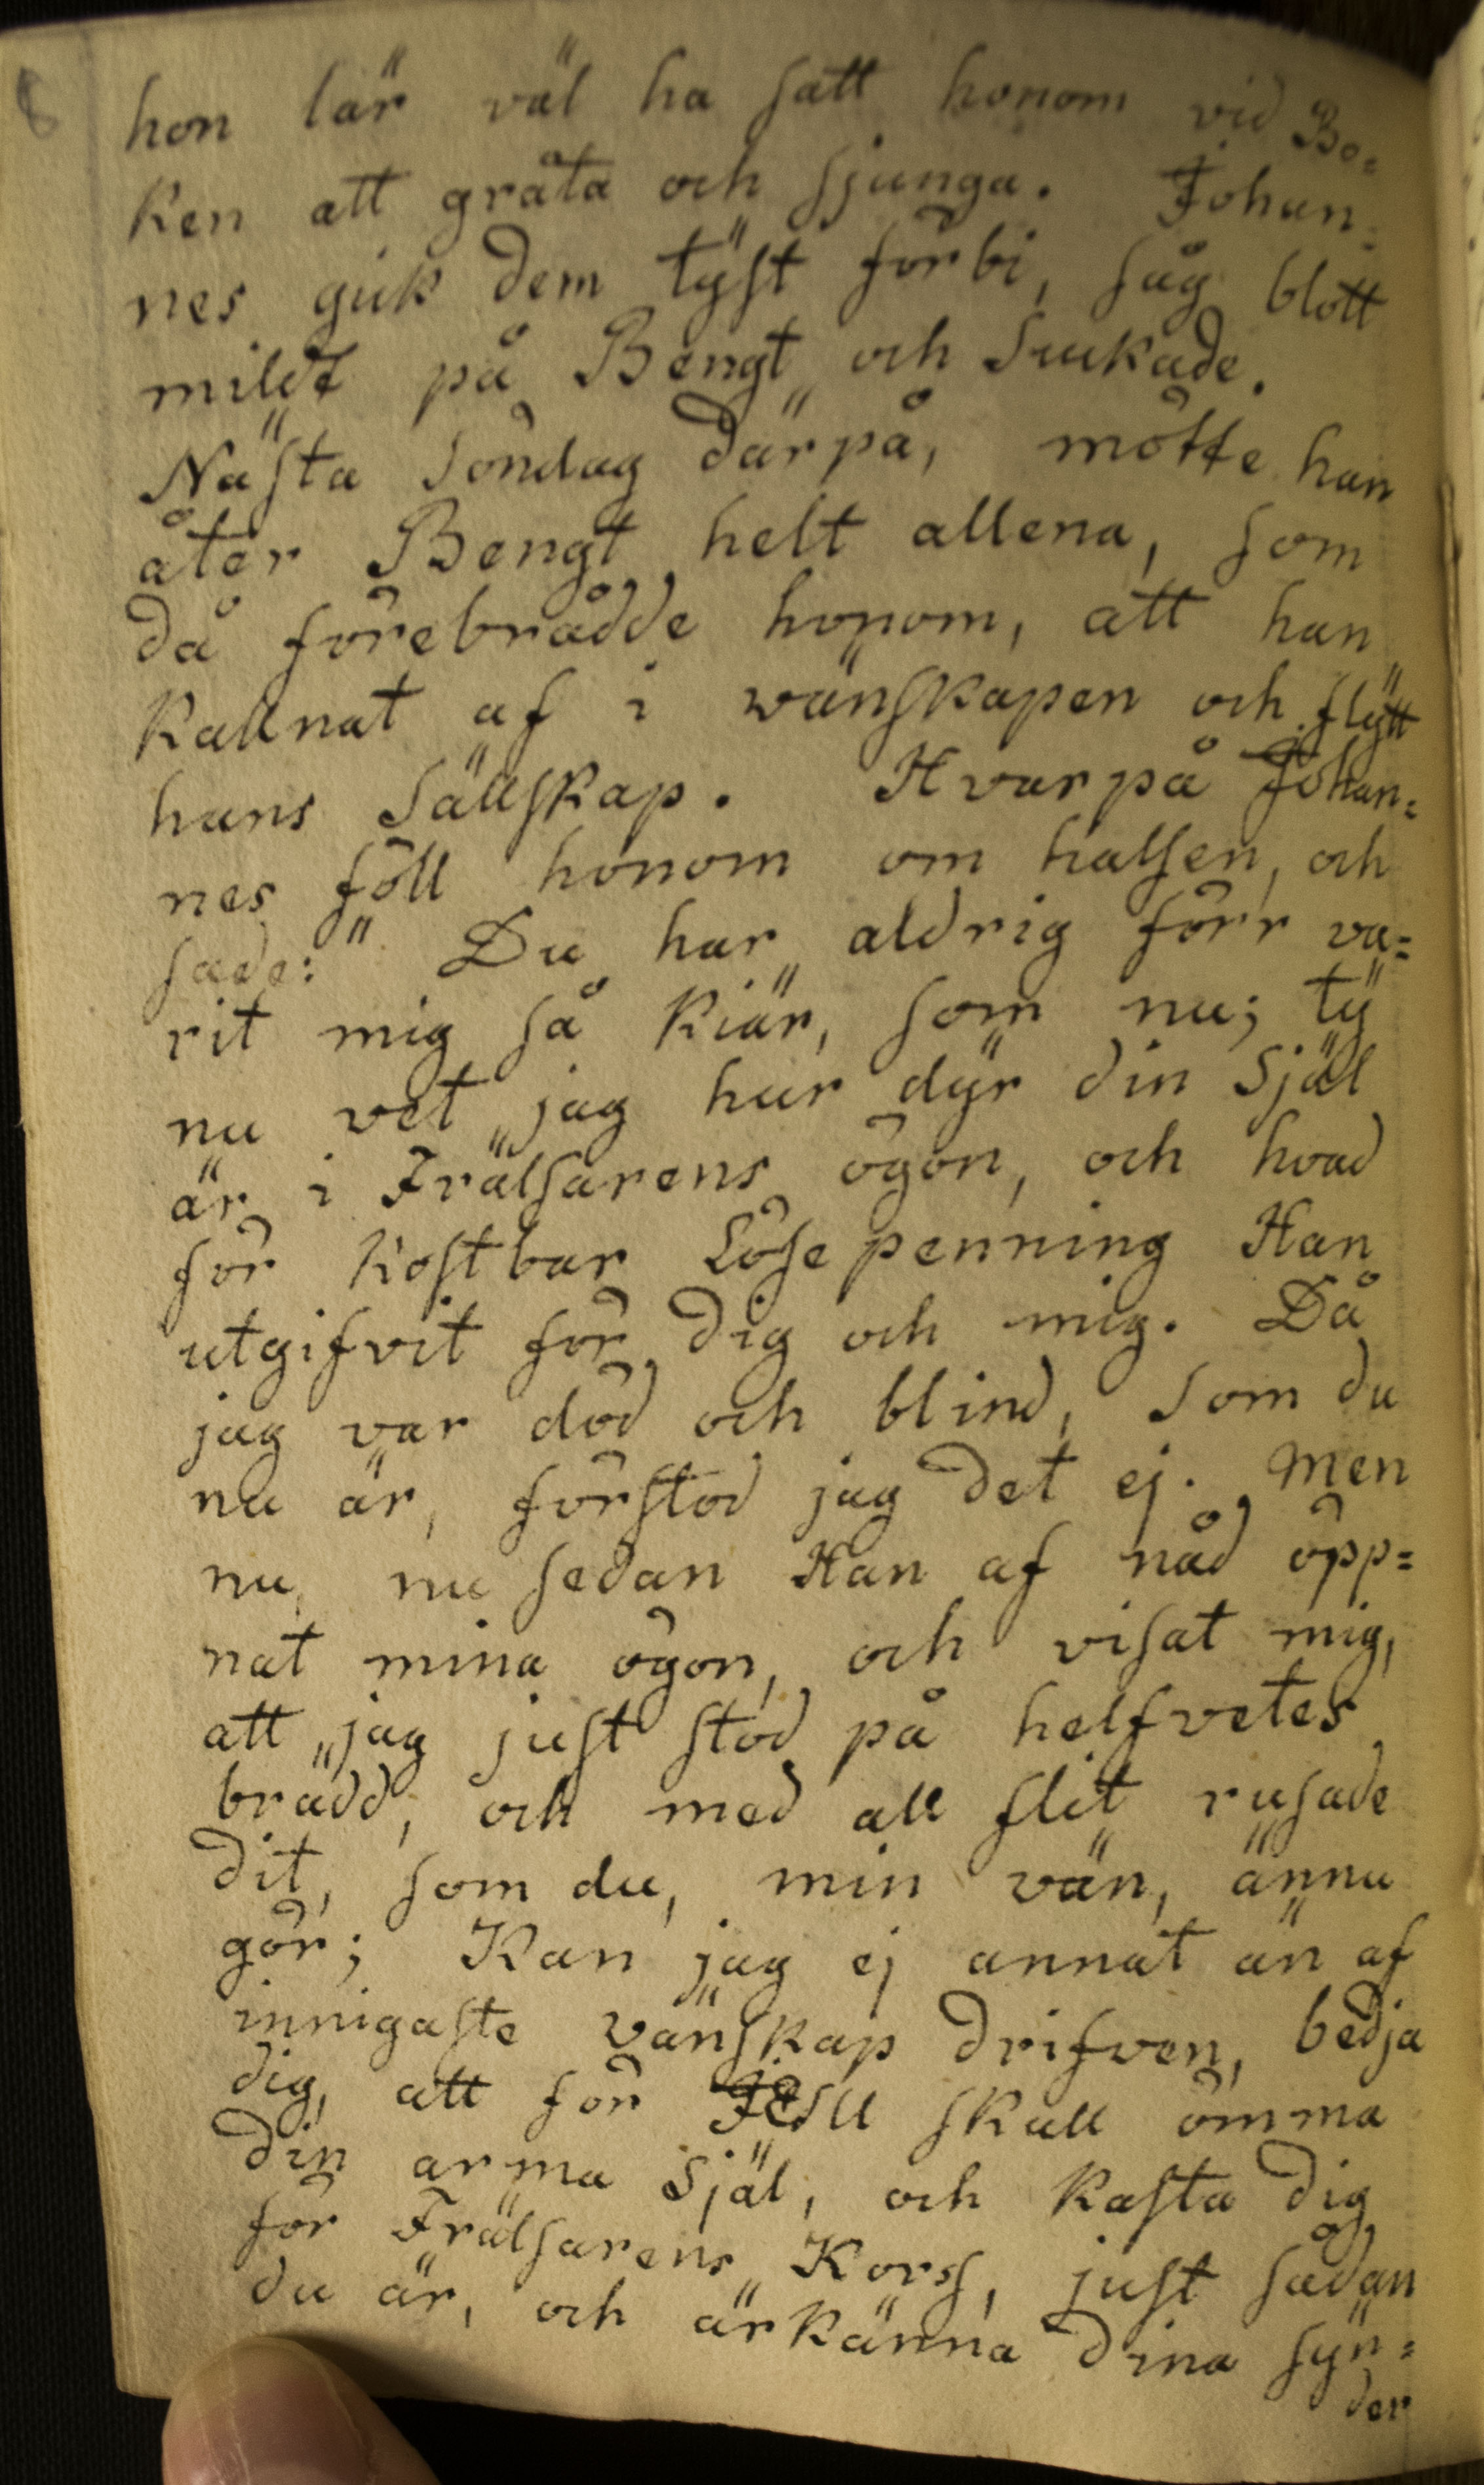 8
hon lär väl ha satt honom vid Bo=
ken att gråta och sjunga. Johan=
nes gick dem tÿst förbi, såg blott
mildt på Bengt och Suckade.
Nästa Söndag därpå, mötte han
åter Bengt helt allena, som
då förebrådde honom, att han
kallnat af i vänskapen och flÿtt
hans Sällskap. Hvarpå Johan=
nes föll honom om halsen, och
sade: " Du har aldrig förr va=
rit mig så kiär, som nu; tÿ
nu vet jag hur dÿr din Själ
är i Frälsarens ögon, och hvad
för kostbar Lösepenning Han
utgifvit för dig och mig. Då
jag var död och blind, som du
nu är, förstod jag det ej. Men
nu, nu sedan Han af nåd öpp=
nat mina ögon, och visat mig,
att jag just stod på helfvetes
brädd, och med all flit rusade
dit, som du, min vän, ännu
gör; Kan jag ej annat än af
innigaste vänskap drifven, bedja
dig, att för JESU skull ömma
din arma Själ, och kasta dig
för Frälsarens Korss, just sådan
du är, och ärkänna dina sÿn=
der